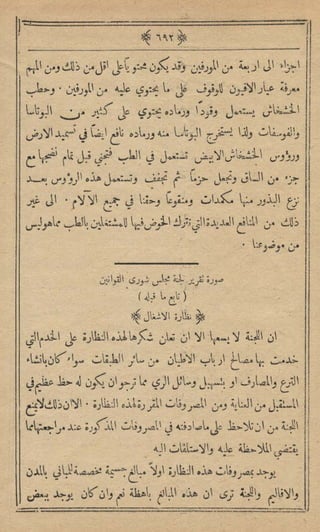 ﴿ ٦٩٢ ﴾
اجزاء الى اربعة من المورفين وقد يكون محتويًا على اقل من ذلك ومن المهم
معرفة عيار الافيون للوقوف على ما يحتوي عليه من المورفين ۰ وحطب
الخشخاش يستعمل وقودًا ورماده يحتوي على كثير من البوتاسا
والفوسفات ولذا يستخرج البوتاسا منه ورماده نافع ايضًا في تسميد الارض
ورؤوس الخشخاش الابيض تستعمل في الطب فتجنى قبل تمام نضجها مع
جزء من الساق وتجعل حزمًا ثم تجفف وتستعمل هذه الرؤوس بعد
نزع البذور منها مكمدات ومنقوعًا وحقنًا في جميع الآلام ۰ الى غير
ذلك من المنافع العديدة التي نترك الخوض فيها للمشتغلين بالطب مما هو ليس
من موضوعنا ۰
صورة تقرير لجنة مجلس شورى القوانين
( تابع ما قبله )
﴿ نظارة الاشغال ﴾
ان اللجنة لا يسعها الا ان تعلن شكرها لهذه النظارة على الخدم التي
خدمت بها مصالح ارباب الاطيان من سائر الطبقات سواء كان بانشاء
الترع والمصارف او بتسهيل وسائل الري مما ترجو ان يكون له حظ عظيم في
المستقبل من العناية ومن المصروفات المقررة لهذه النظارة ۰ الا ان ذلك لا يمنع
اللجنة من ان تلاحظ على ما صادفته في المصروفات المذكورة عند مراجعتها مما
يقتضي الملاحظة عليه والاستلفات اليه
يوجد بمصروفات هذه النظارة اولاً مبالغ جسيمة مخصصة للمباني بالمدن
والاقاليم واللجنة ترى ان هذه المبالغ باهظة نعم وان كان يوجد ببعض